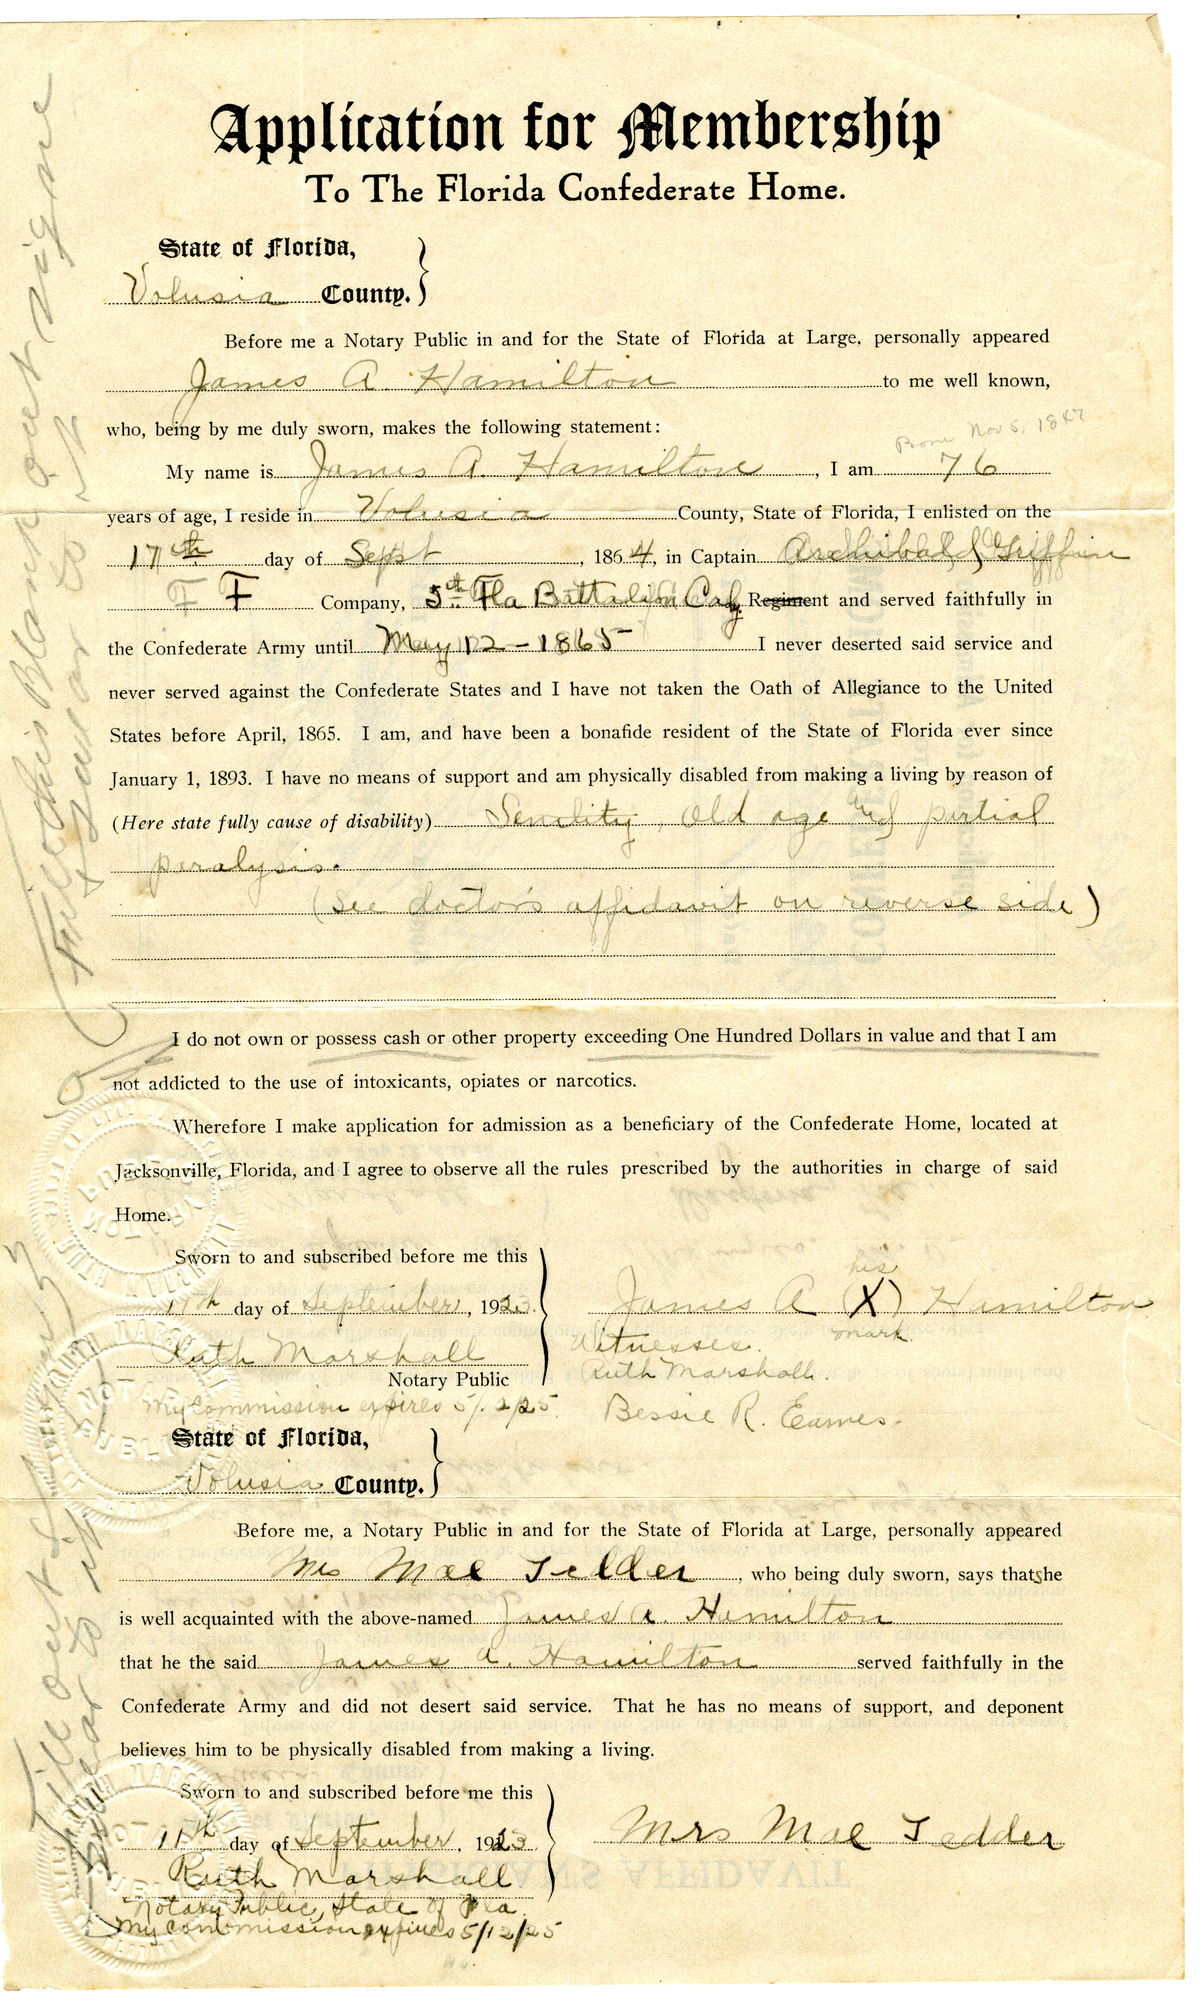 Application for Membership
To The Florida Confederate Home.
State of Florida,
Volusia County.
Before me a Notary Public in and for the State of Florida at Large, personally appeared
James A. Hamilton to me well known,
who, being by me duly sworn, makes the following statement:
Born Nov 5, 1847
My name is James A. Hamilton, I am 76
years of age, I reside in Volusia County, State of Florida, I enlisted on the
17th day of Sept, 1864, in Captain Archibald Griffin
F F Company, 5th Fla Battalion Cav. Regiment and served faithfully in
the Confederate Army until May 12-1865 I never deserted said service and
never served against the Confederate States and I have not taken the Oath of Allegiance to the United
States before April, 1865. I am, and have been a bonafide resident of the State of Florida ever since
January 1, 1893. I have no means of support and am physically disabled from making a living by reason of
(Here state fully cause of disability) Senility, old age and partial
paralysis.
(see doctor's affidavit on reverse side)
I do not own or possess cash or other property exceeding One Hundred Dollars in value and that I am
not addicted to the use of intoxicants, opiates or narcotics.
Wherefore I make application for admission as a beneficiary of the Confederate Home, located at
Jacksonville, Florida, and I agree to observe all the rules prescribed by the authorities in charge of said
Home.
Sworn to and subscribed before me this
11th day of September, 1923.
Ruth Marshall
Notary Public
My commission expires 5/12/25.
his
James A (X) Hamilton
mark.
Witnesses.
Ruth Marshall.
Bessie R. Eames.
State of Florida,
Volusia County.
Before me, a Notary Public in and for the State of Florida at Large, personally appeared
Mrs Mae Tedder, who being duly sworn, says that she
is well acquainted with the above-named James A. Hamilton
that he the said James A. Hamilton served faithfully in the
Confederate Army and did not desert said service. That he has no means of support, and deponent
believes him to be physically disabled from making a living.
Sworn to and subscribed before me this
11th day of September, 1923
Ruth Marshall
Notary Public, State of Fla.
My commission expires 5/12/25
Mrs Mae Tedder
Fill this Blank out sign
& swear to it
Fill out &
swear to it